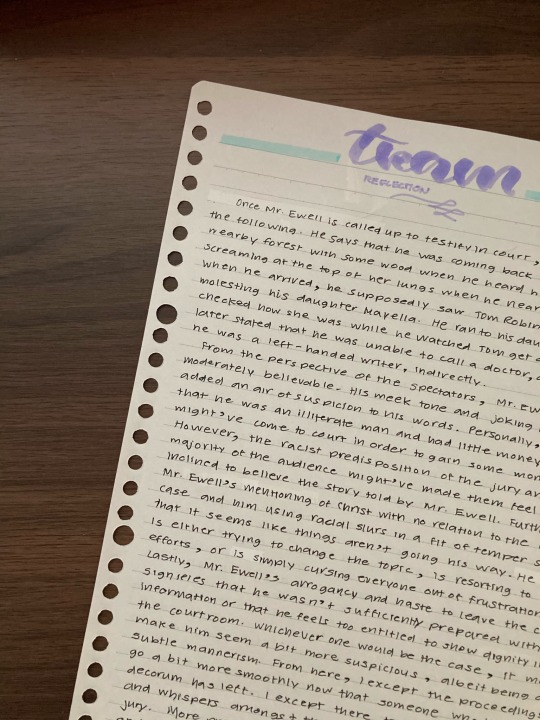 team
REFLECTION
Once Mr. Ewell is called up to testify in court,
the following. He says that he was coming back
nearby forest with some wood when he heard h
screaming at the top of her lungs when he near
when he arrived, he supposedly saw Tom Robin
molesting his daughter Mayella. He ran to his dau
checked how she was while he watched Tom get a
later stated that he was unable to call a doctor, a
he was a left-handed writer, indirectly.
From the perspective of the spectators, Mr. Ew
moderately believable. His meek tone and joking
added an air of suspicion to his words. Personally,
that he was an illiterate man and had little money
might've come to court in order to gain some mon
However, the racist predisposition of the jury an
majority of the audience might've made them feel
inclined to believe the story told by Mr. Ewell. Furth
Mr. Ewell's mentioning of Christ with no relation to the
case and him using racial slurs in a fit of temper s
that it seems like things aren't going his way. He
is either trying to change the topic, is resorting to
efforts, or is simply cursing everyone out of frustration
Lastly, Mr. Ewell's arrogancy and haste to leave the c
signifies that he wasn't sufficiently prepared with
information or that he feels too entitled to show dignity i
the courtroom. Whichever one would be the case, it m
make him seem a bit more suspicious, albeit being a
subtle mannerism. From here, I except the proceeding
go a bit more smoothly now that someone wh
decorum has left. I except there to
and whispers amongst th
jury. More